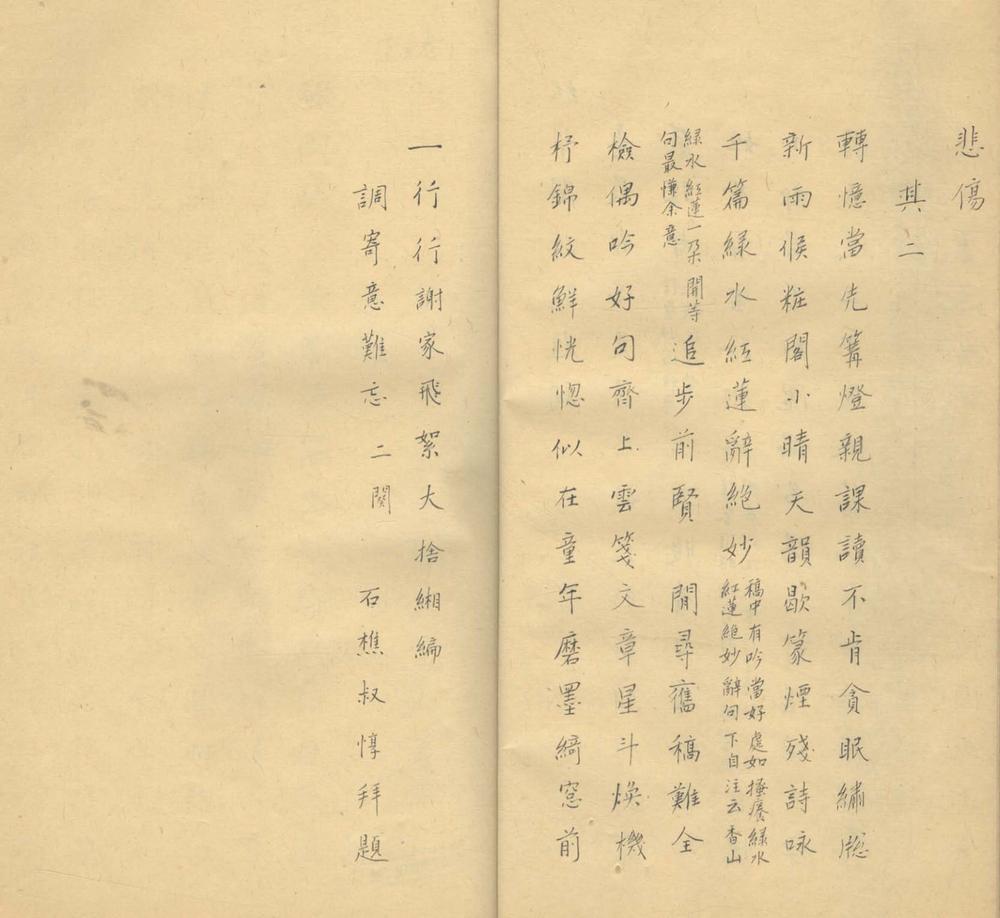 悲傷
其二
轉憶當先篝燈親課讀不肯貪眠繡牕
新雨候粧閣小晴天韻歇篆煙殘詩咏
千篇綠水紅蓮辭絕妙稿中有吟當好處如搔癢綠水
紅蓮絕妙辭句下自注云香山
綠水紅蓮一朵開等
句最慊余意追步前賢閒尋舊稿難全
檢偶吟好句齊上雲箋文章星斗煥機
杼錦紋鮮恍惚似在童年磨墨綺窓前
一行行謝家飛絮大捨緗編
調寄意難忘二闋 石樵叔惇拜題